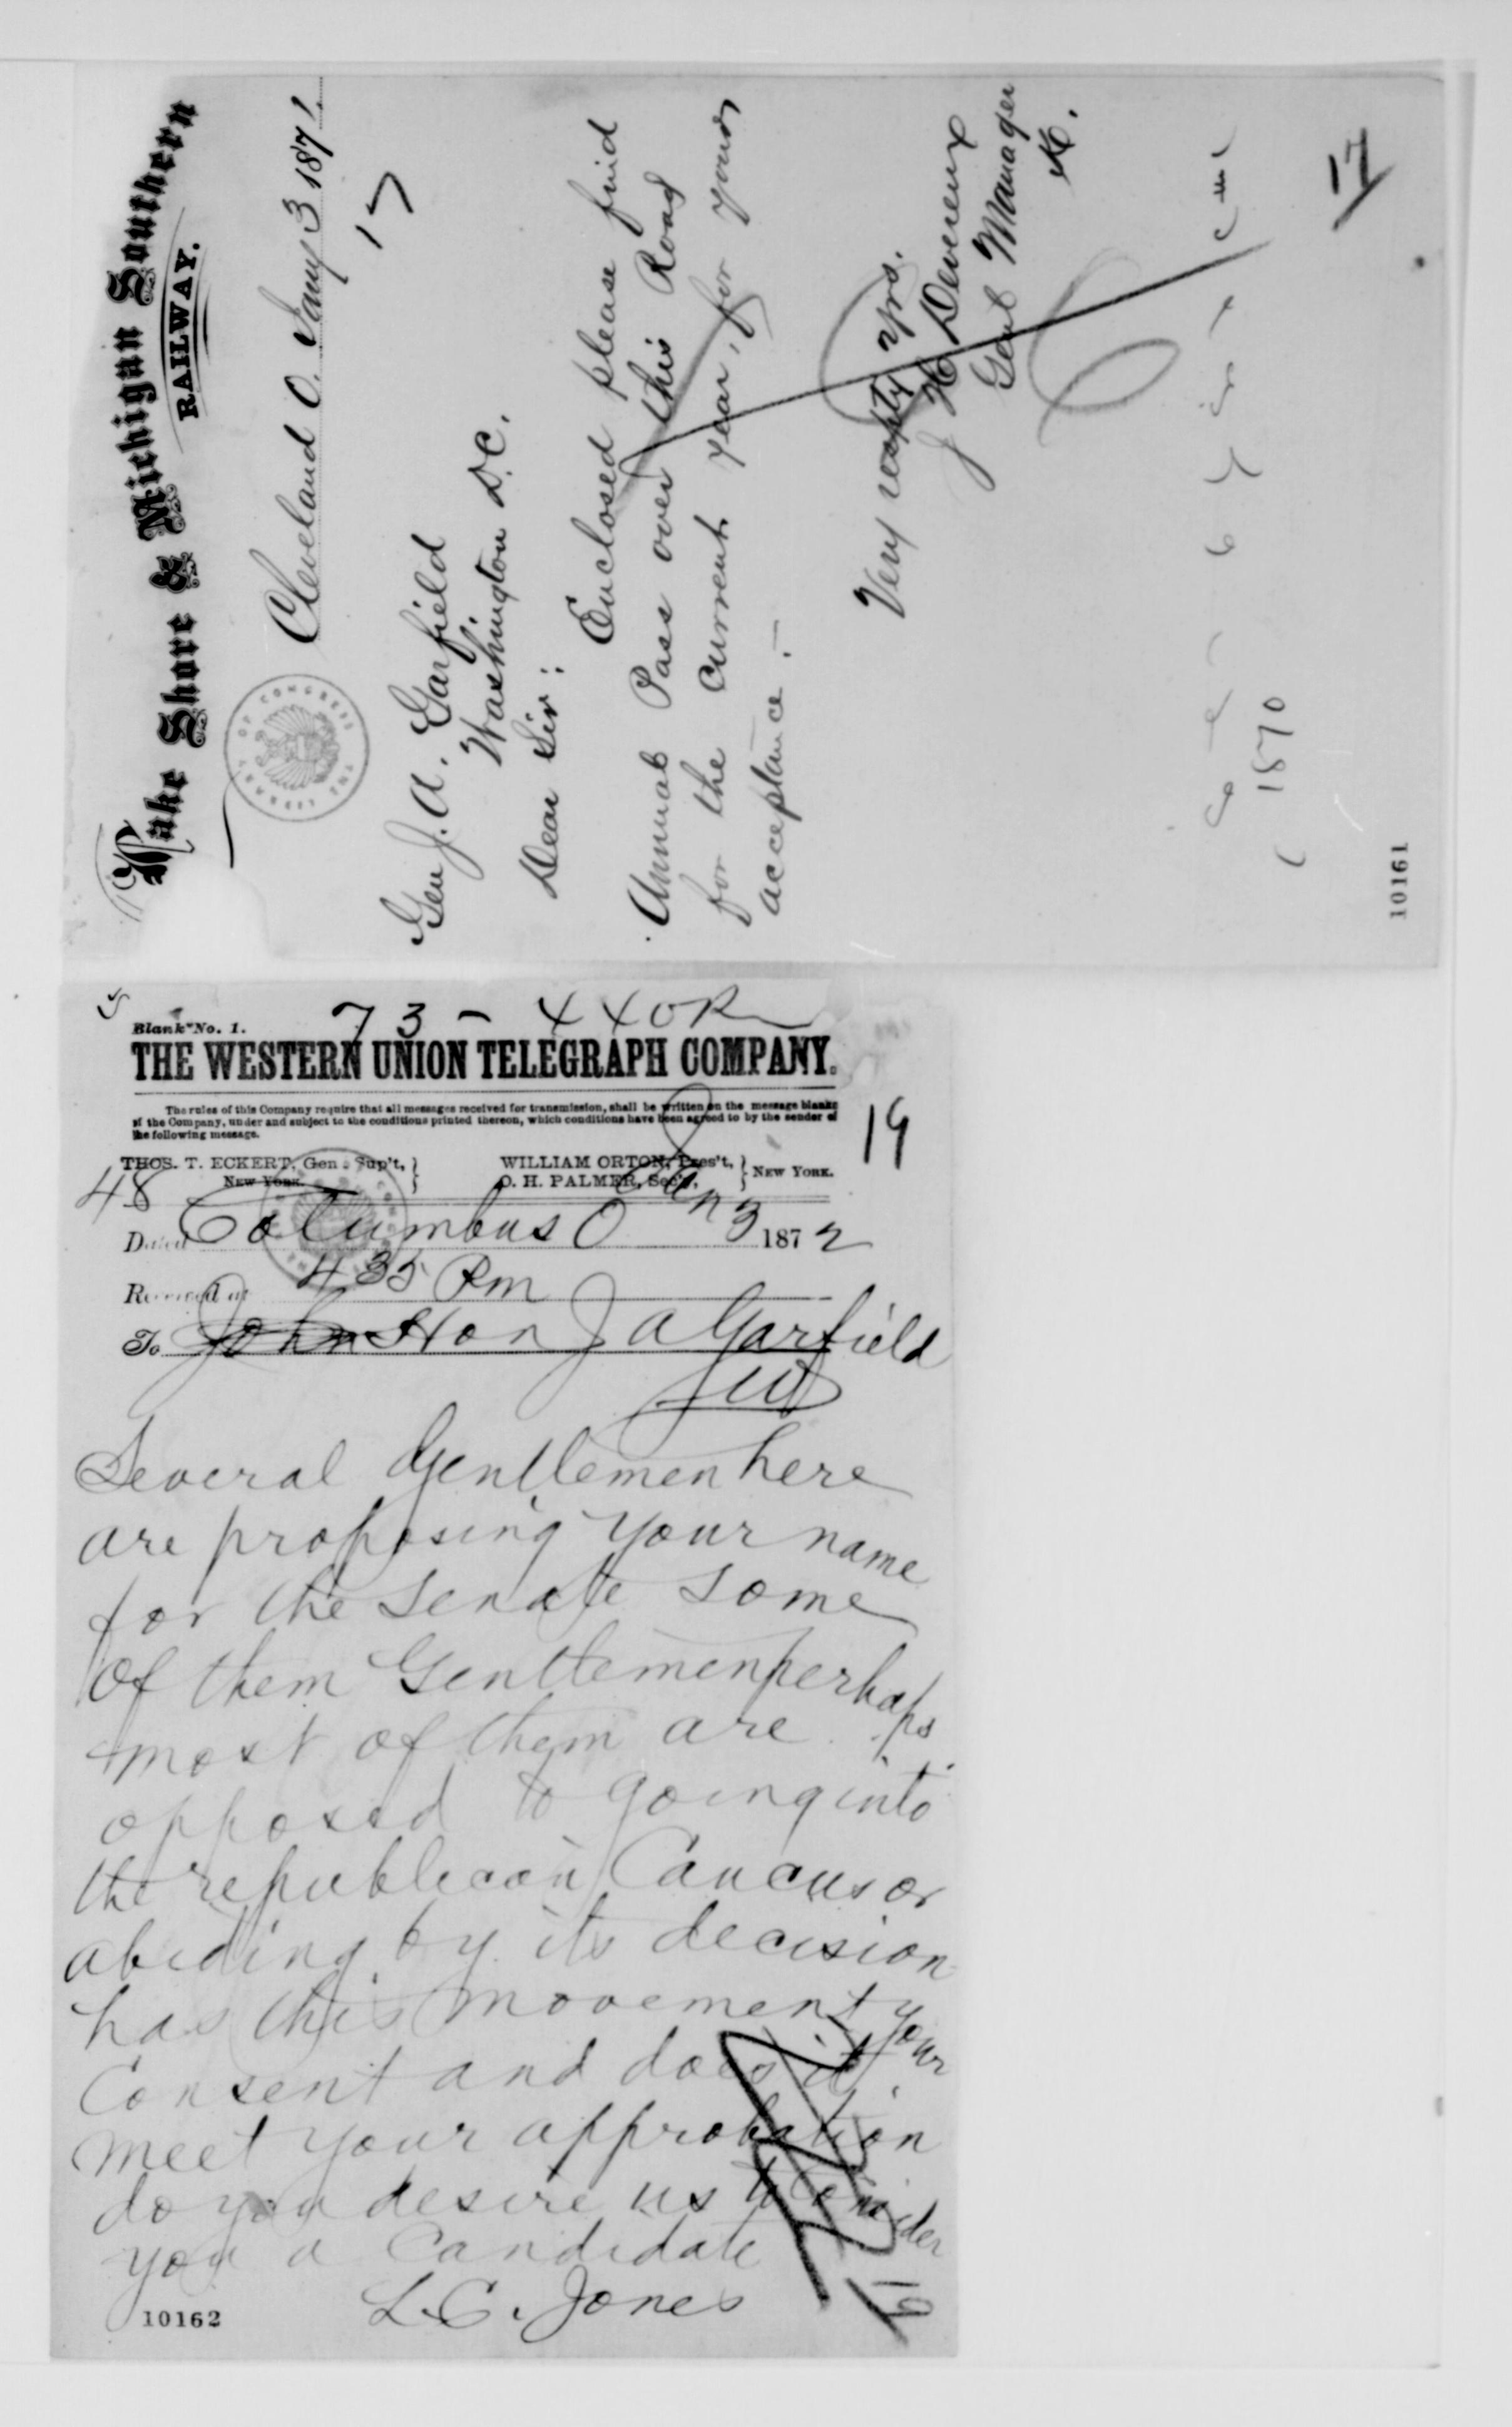 Lake Shore & Michigan Southern
RAILWAY.
Cleveland O. Jany 3 1871.
17
Gen J. A. Garfield
Washington D.C.
Dear Sir:
Enclosed please find
Annual Pass over this Road
for the current year, for your
acceptance.—
Very respty yrs.
J H Devereux
Genl Manager
17
1870
10161
73 - 440R
Blank No. 1.
THE WESTERN UNION TELEGRAPH COMPANY.
The rules of this Company require that all messages received for transmission, shall be written on the message blanks
of the Company, under and subject to the conditions printed thereon, which conditions have been agreed to by the sender of
the following message.
19
THOS. T. ECKERT, Gen. Sup't,
NEW YORK.
WILLIAM ORTON, Pres't,
O. H. PALMER, Sec'y,
NEW YORK.
48
Dated Columbus O Jan 3 1872
Received at 435 Pm
To John Hon J A Garfield
Several Gentlemen here
are proposing your name
for the Senate some
of them Gentlemen perhaps
most of them are
opposed to going into
the republican Caucus or
abiding by its decision
has this movement your
Consent and does it
meet your approbation
do you desire us to consider
you a Candidate
L. C. Jones
10162
19